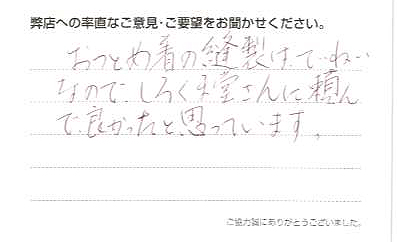 弊店への率直なご意見・ご要望をお聞かせください。
おつとめ着の縫製は、ていねい
なので、しろくま堂さんに頼ん
で、良かったと思っています。
ご協力誠にありがとうございました。